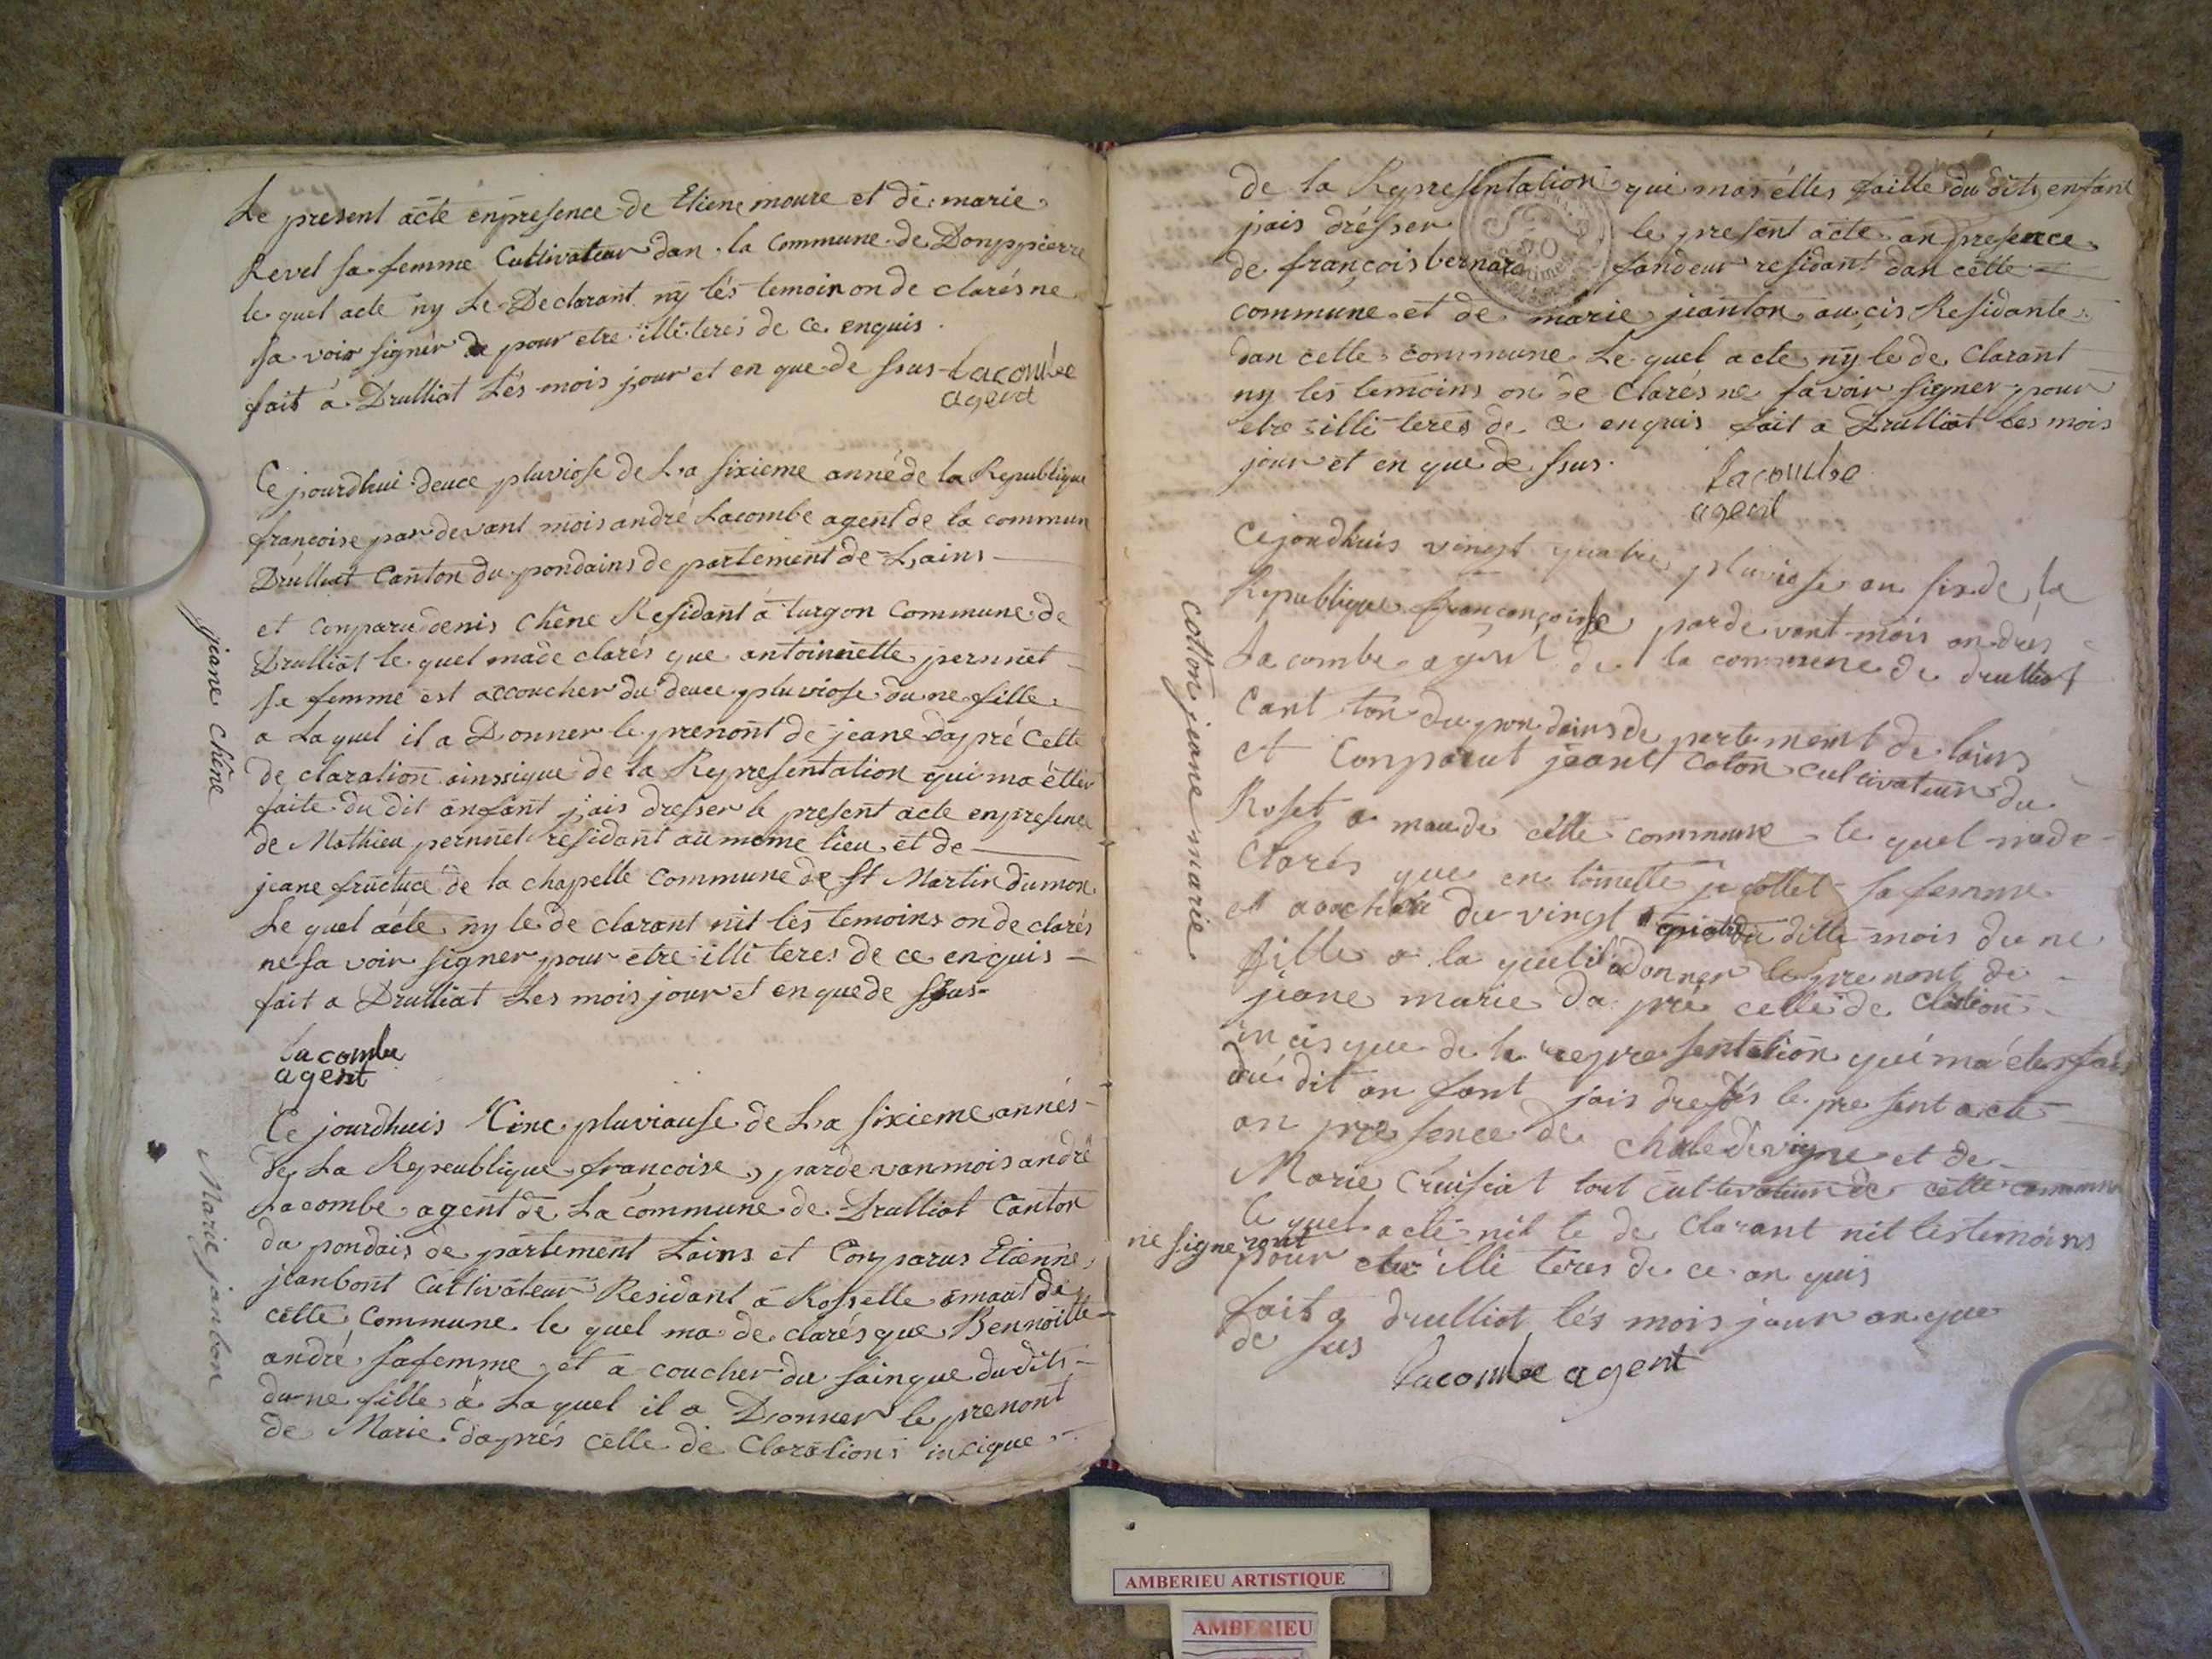 Le present acte enpresence de Etiene moure et de marie
Revel sa femme Cultivateur dan la Commune de Donppierre
le quel acte ny Le Declarant ny lés temoin on de clarés ne
sa voir signér de pour etre illiterés de ce enquis
fait á Drulliat Lés mois jour et en que de ssus Lacombe
agent
Ce jourdhui deuce pluviose de La sixieme anné de la Republique
françoise par devant mois andré Lacombe agent de la commun
Drulliat Canton du pondains de partement de Lains
et Conparu denis Chêne Residant á turgon Commune de
Drulliat le quel made clarés que antoinette pernnet
sa femme est accoucher du deuce pluviose du ne fille
a La quel il a Donner le prenont de jeane dapré Cette
de claration ainssique de la Representation qui ma étter
faite du dit anfant jais dresser le present acte enpresence
de Mathieu pernnet residant au meme lieu et de
jeane fructuce de la chapelle Commune de St Martin dumon
Le quel acte ny le de clarant nit lés temoins on de clarés
ne sa voir signer pour etre illi teres de ce enquis
fait a Drulliat Les mois jour et en quede ssus
Lacombe
agent
jeane Chêne
Ce jourdhuis Cinc pluviause de La sixieme annés
de La Republique françoise, parde van mois andré
Lacombe agent de La commune de Drulliat Canton
du pondais de partement Lains et Conparus Etienne
jeanbont Cultivateur Residant á Rossette amaut de
cette Commune le quel ma de clarés que Bennoitte
andré sa femme et a coucher du sainque du dits
du ne fille á La quel il a Donner le prenont
de Marie daprés cette de Clarations incique
Marie janbon
de la Representation qui mas éttes faitte du dits enfant
jais drésser le present acte an presence
de françois bernara fandeur residant dan cette
commune et de marie jeanton aucis Residante
dan cette commune Le quel acte ny le de Clarant
ny lés temoins on de Clarés ne savoir signer pour
etre illi terés de ce enquis fait a Drulliat les mois
jour et en que de ssus.
Lacombe
agent
Cejourdhuis vingt quatre pluviose an six de la
Republique françonçoise parde vant mois andrés
Lacombe agent de la commune de drulliat
Cant ton du pon dains de partement de lains
et Conparut jeant Coton cultivateur du
Roset a mau de cette commune le quel made
Clarés que en toinette jacollet sa femme
et acouchér du vingt quatre du ditte mois du ne
fille a la quelil adonner le prenont de
jeane marie da pré cette de Clation
in cisque de la representation qui ma éter fai
du dit an fant jais dressés le pre sent acte
an pre sence de chale devigne et de
Marie Cruisiat tout Cultivateur de cette commune
le quel acte nit le de Clarant nit lestemoins
ne signe ront
pour etre illi teres de ce an quis
fait a drulliat lés mois jour an que
de sus
Lacombe agent
Cotton jeane marie
AMBERIEU ARTISTIQUE
AMBERIEU